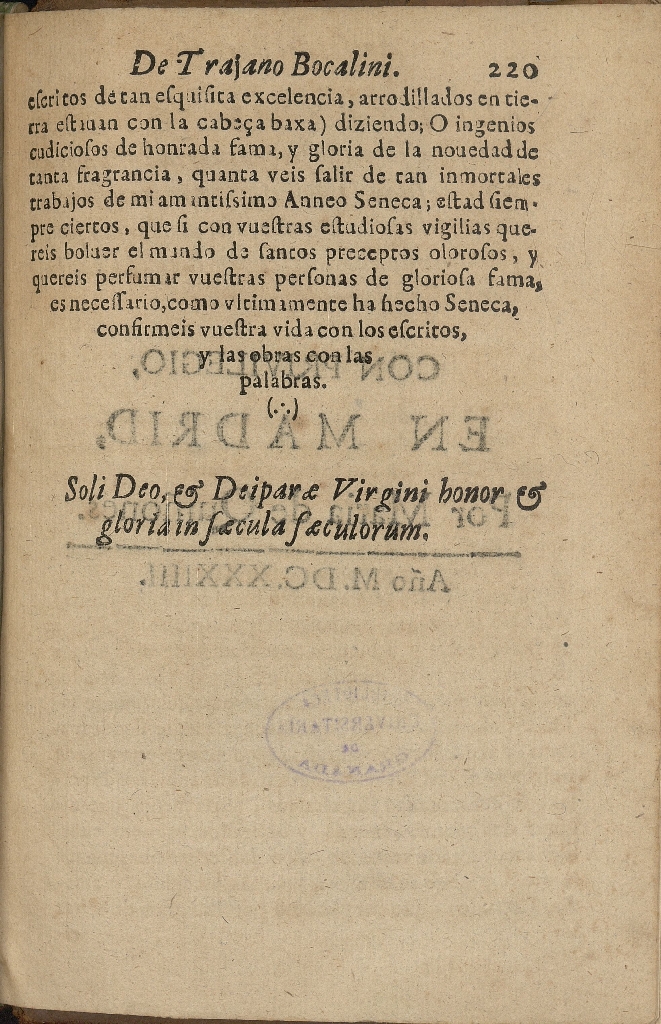 De Trajano Bocalini. 220
eſcritos de tan eſquiſita excelencia, arrodillados en tie-
rra eſtauan con la cabeça baxa) diziendo; O ingenios
cudicioſos de honrada fama, y gloria de la nouedad de
tanta fragrancia, quanta veis ſalir de tan inmortales
trabajos de mi amantiſsimo Anneo Seneca; eſtad ſiem-
pre ciertos, que ſi con vueſtras eſtudioſas vigilias que-
reis boluer el mundo de ſantos preceptos oloroſos, y
quereis perfumar vueſtras perſonas de glorioſa fama,
es neceſſario, como vltimamente ha hecho Seneca,
confirmeis vueſtra vida con los eſcritos,
y las obras con las
palabras.
(∴)
Soli Deo, & Deiparæ Virgini honor &
gloria in ſæcula ſæculorum.
CON PRIVILEGIO,
EN MADRID,
Por Maria de Quiñones.
Año M.DC.XXXIIII.
BIBLIOTECA
UNIVERSITARIA
DE
GRANADA